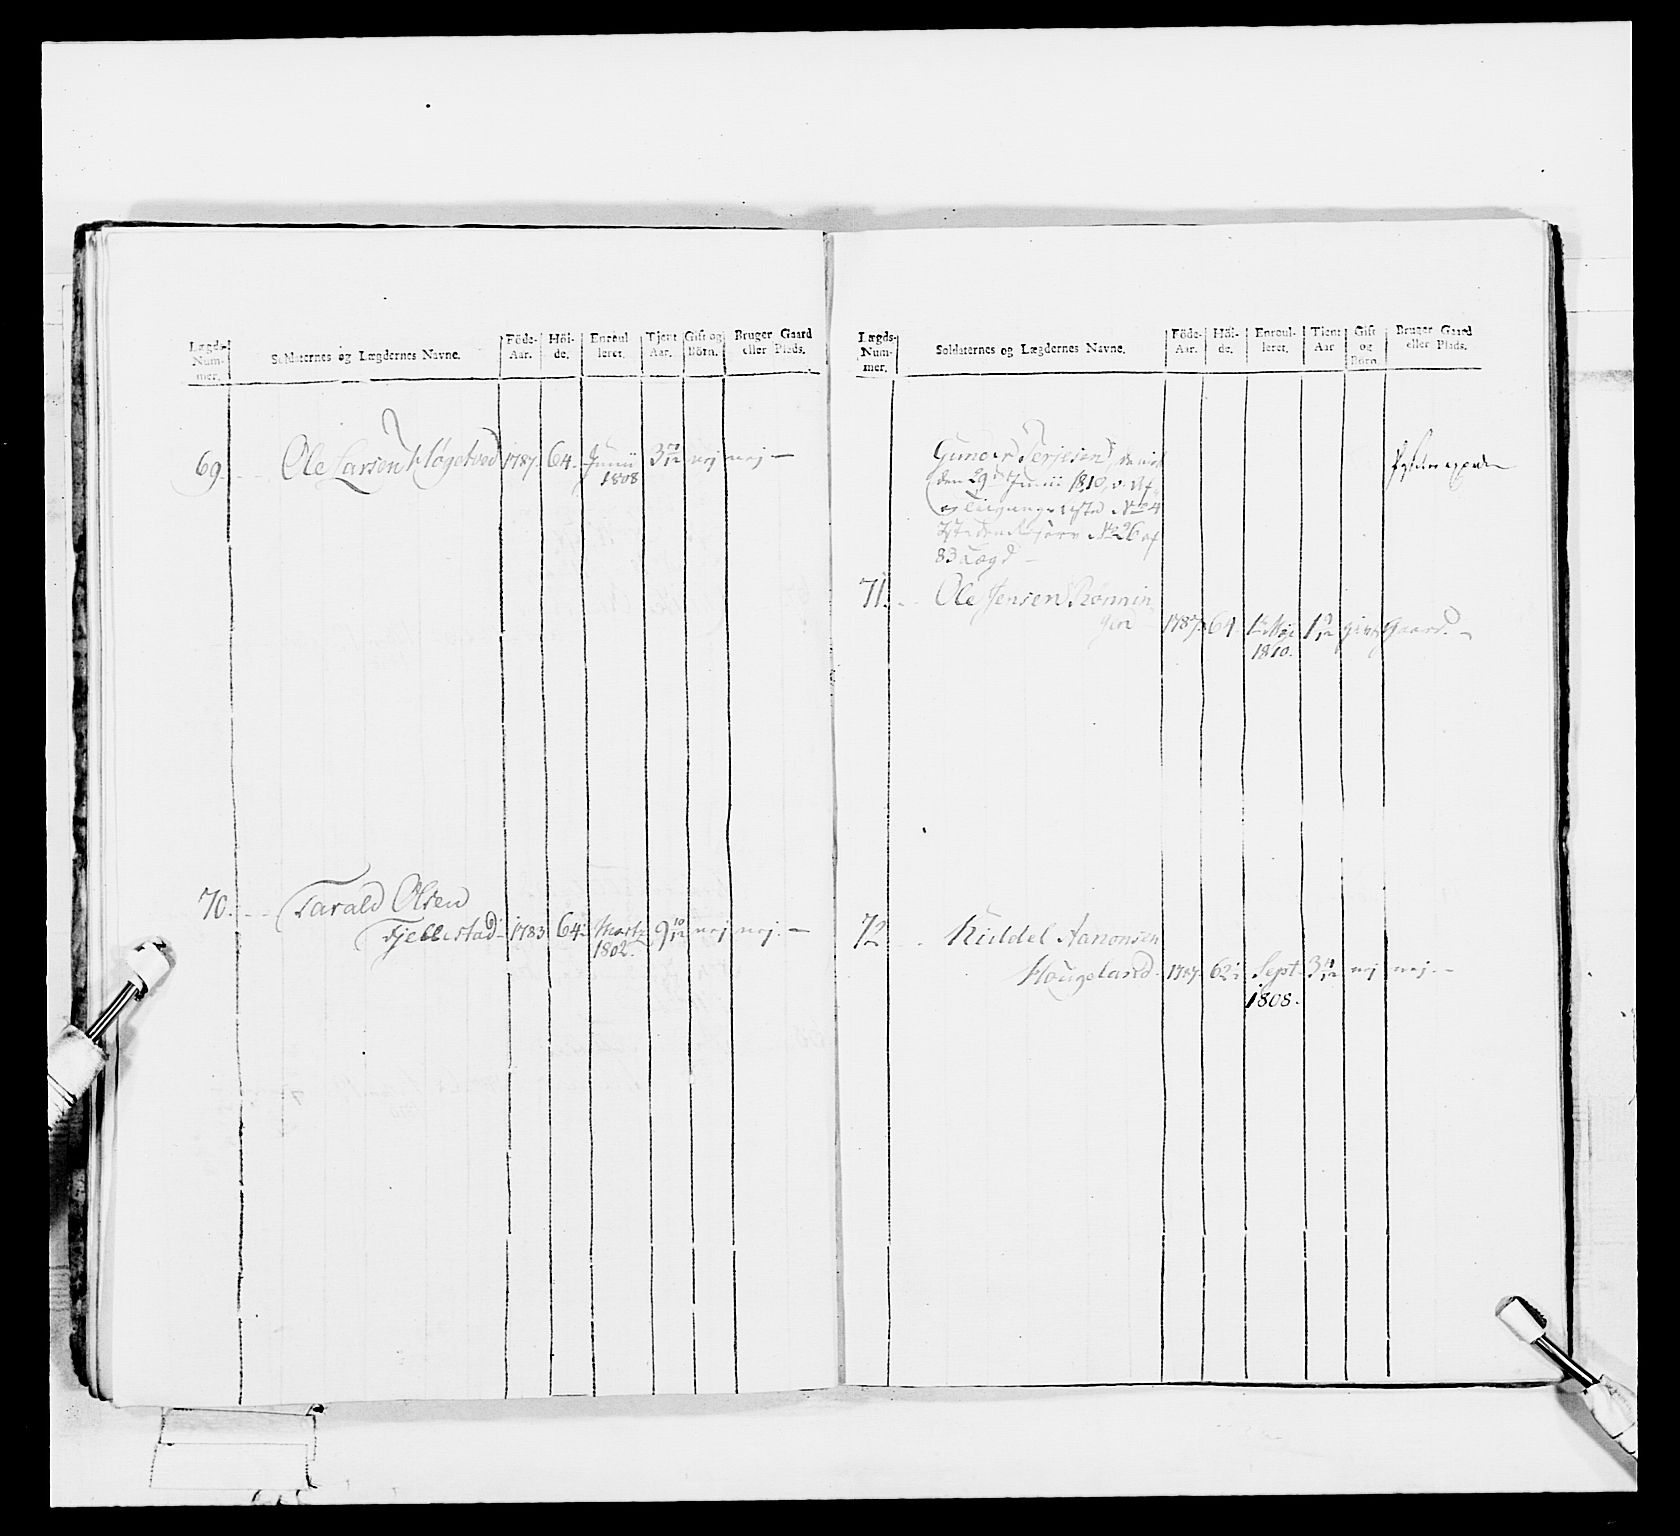 Lægds-
Num-
mer.
Soldaternes og Lægdernes Navne.
Föde-
Aar.
Höi-
de.
Enroul
leret.
Tjent
Aar.
Gift og
Börn.
Bruger Gaard
eller Plads.
69. Ole Larsen Høgetved 1787. 64. Junii 3 10/12 nej nej —
1808
70. Tarald Olsen
Fjellestad 1783 64. Martz 9 10/12 nej nej. —
1802.
Lægds-
Num-
mer.
Soldaternes og Lægdernes Navne.
Föde-
Aar.
Höi-
de.
Enroul-
leret.
Tjent
Aar
Gift
og
Börn.
Bruger Gaard
eller Plads.
Gunder Terjesen
den 29 Junii 1810, v. Af
og No 4
No 26 af
83 Lægd —
71. Ole Jensen Rønnin
gen 1787. 64. 1 Maj 1 givt Gaard. —
1810.
72 Kiddel Aanonsen
Hougeland 1787. 62 Sept. 3 nej nej. —
1808.